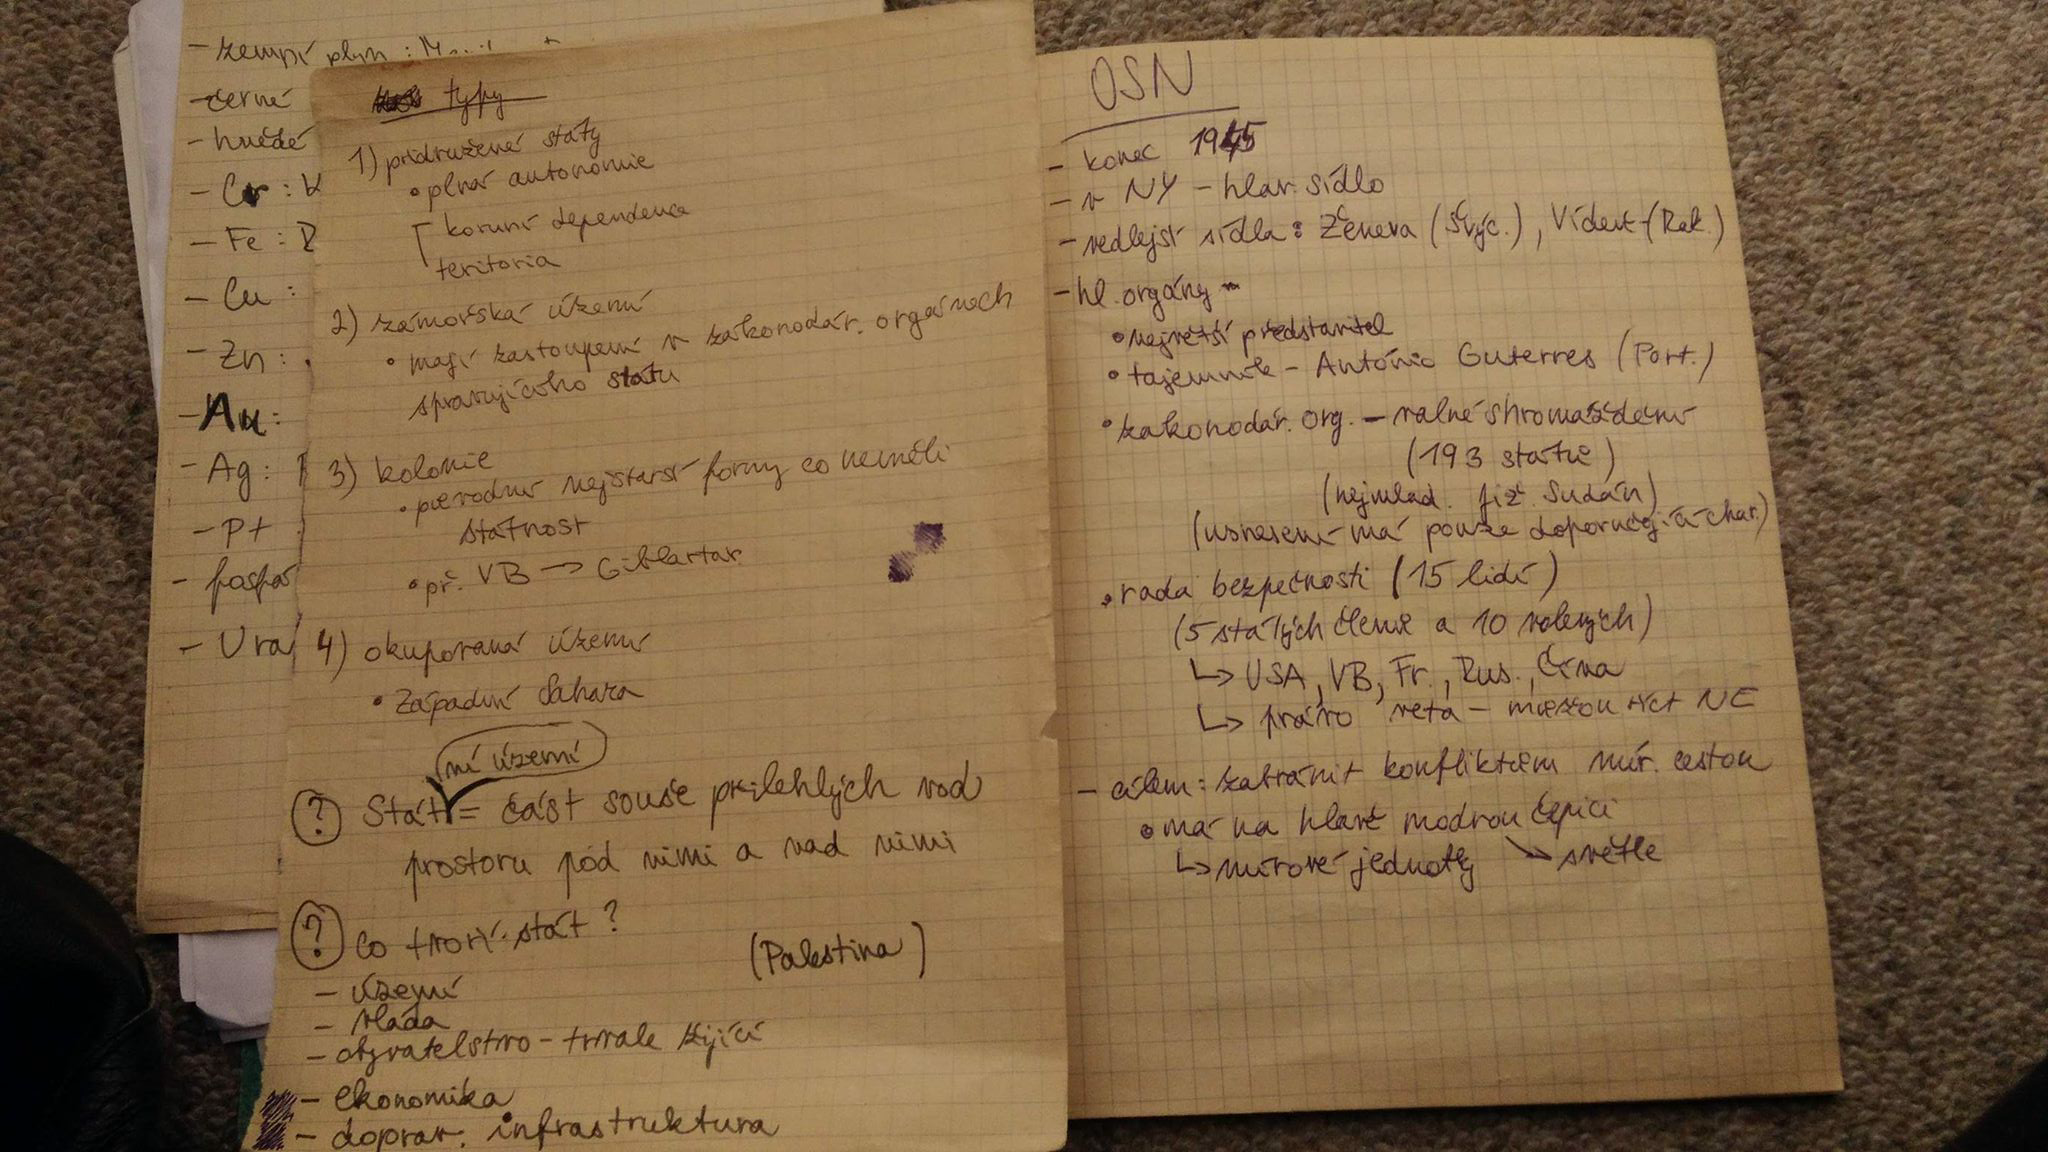 - zemní plyn :
- černé
- hnědé
- Cr : K
- Fe :
- Cu :
- Zn :
- Au :
- Ag :
- Pt
- fosfá
- Ura
typy
1) přidružené státy
• plná autonomie
korunní dependence
teritoria
2) zámořská území
• mají zastoupení v zákonodár. orgánech
spravujícího státu
3) kolonie
• původní nejstarší formy co neměli
státnost
• př. VB → Giblartar
4) okupovaná území
• Západní Sahara
ní území
? Stát = část souše přilehlých vod
prostoru pod nimi a nad nimi
? co tvoří stát ?
(Palestina)
- území
- vláda
- obyvatelstvo - trvale žijící
- ekonomika
- doprav. infrastruktura
OSN
- konec 1945
- v NY - hlav. sídlo
- vedlejší sídla : Ženeva (Švýc.), Vídeň (Rak.)
- hl. orgány -
• největší představitel
• tajemník - António Guterres (Port.)
• zákonodár. org. - valné shromáždění
(193 států)
(nejmlad. Již. Sudán)
(usnesení má pouze doporučující char.)
• rada bezpečnosti (15 lidí)
(5 stálých členů a 10 volených)
↳ USA, VB, Fr., Rus., Čína
↳ právo veta - můžou říct NE
- cílem : zabránit konfliktům mír. cestou
• má na hlavě modrou čepici
↳ mírové jednotky ↘ světle